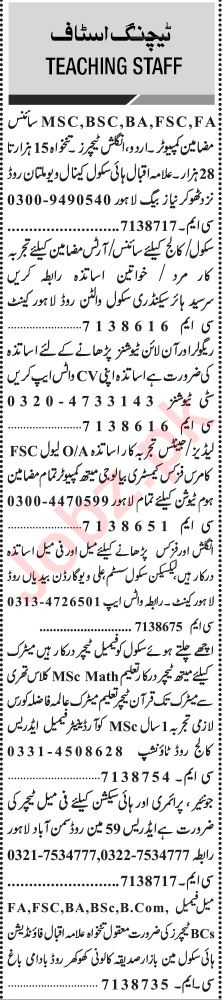 ٹیچنگ اسٹاف
TEACHING STAFF
MSC,BSC,BA,FSC,FA سائنس
مضامین کمپیوٹر۔ اردو، انگلش ٹیچرز۔ تنخواہ 15 ہزار تا
28 ہزار۔ علامہ اقبال ہائی سکول کینال ویو ملتان روڈ
نزد ٹھوکر نیاز بیگ لاہور 0300-9490540
سی ایم۔ 7138717
سکول/کالج کیلئے سائنس/آرٹس مضامین کیلئے تجربہ
کار مرد/خواتین اساتذہ رابطہ کریں
سرسید ہائر سیکنڈری سکول والٹن روڈ لاہور کینٹ
سی ایم 7138616
ریگولر اور آن لائن ٹیوشنز پڑھانے کے لئے اساتذہ
کی ضرورت ہے اساتذہ اپنی CV واٹس ایپ کریں
سٹی ٹیوشنز 0320-4733143
سی ایم 7138616
لیڈیز/جینٹس تجربہ کار اساتذہ O/A لیول FSC
کامرس فزکس کیمسٹری بیالوجی میتھ کمپیوٹر تمام مضامین
ہوم ٹیوشن کیلئے تمام لاہور 0300-4470599
سی ایم 7138651
انگلش اور فزکس پڑھانے کیلئے میل اور فی میل اساتذہ
درکار ہیں، لیکسیکن سکول سسٹم علی ویو گارڈن بیدیاں روڈ
لاہور کینٹ۔ رابطہ واٹس ایپ 0313-4726501
سی ایم 7138675
اچھے چلتے ہوئے سکول کو فیمیل ٹیچر درکار ہیں میٹرک
کیلئے میتھ ٹیچر درکار تعلیم MSc Math کلاس تھری
سے میٹرک تک قرآن ٹیچر تعلیم میٹرک عالمہ فاضلہ کورس
لازمی تجربہ 1 سال MSc کوآرڈینیٹر فیمیل ایڈریس
کالج روڈ ٹاؤنشپ 0331-4508628
سی ایم۔ 7138754
جونیئر، پرائمری اور ہائی سیکشن کیلئے فی میل ٹیچر کی
ضرورت ہے ایڈریس 59 مین روڈ سمن آباد لاہور
رابطہ 0321-7534777,0322-7534777
سی ایم۔ 7138717
میل فیمیل FA,FSC,BA,BSc,B.Com,
BCs ٹیچرز کی ضرورت معقول تنخواہ علامہ اقبال فاؤنڈیشن
ہائی سکول مین بازار صدیقیہ کالونی کھوکھر روڈ بادامی باغ
سی۔ایم۔ 7138735